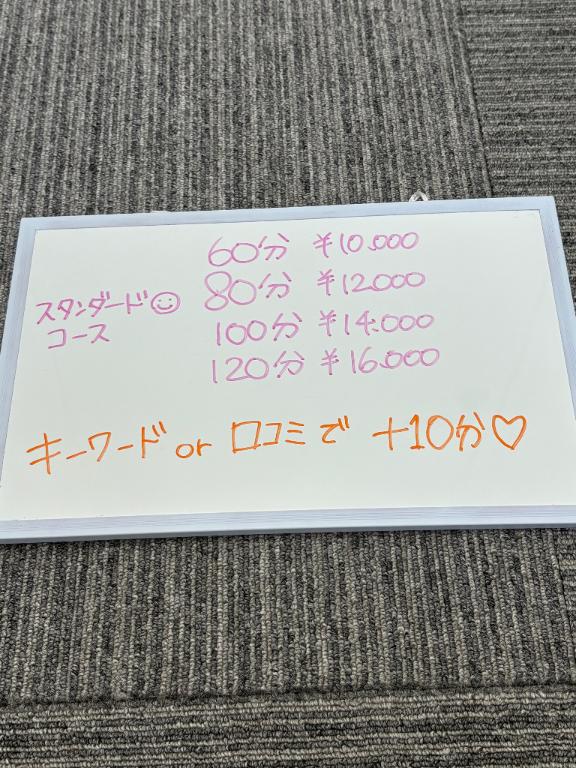 スタンダード☺
コース
60分 ¥10.000
80分 ¥12000
100分 ¥14.000
120分 ¥16.000
キーワード or 口コミで +10分♡